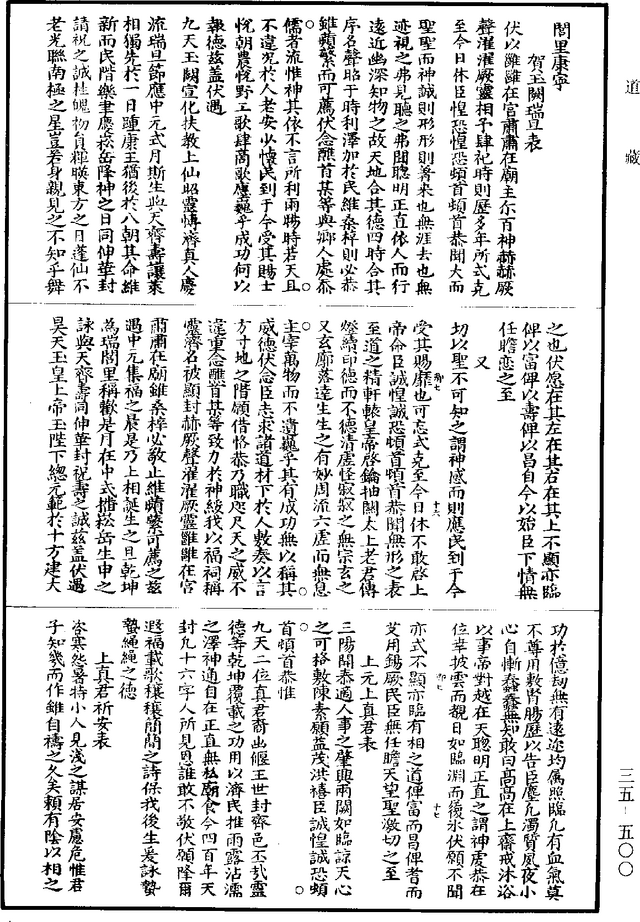 道藏
閤里康寧
賀玉闕瑞旦表
伏以雝雝在宮肅肅在廟主尓百神赫赫厥
聲濯濯厥靈相予肆祀時則歷多年所式克
至今日休臣惶恐惶恐頓首頓首恭聞大而
聖聖而神誠則形形則著來也無涯去也無
迹視之弗見聽之弗聞聰明正直依人而行
遠近幽深知物之故天地合其德四時合其
序名聲昭于時利澤加於民維桑梓則必恭
雖蘋蘩而可薦伏念醮首某等與鄉人處忝
儒者流惟神其依不言所利雨暘時若天且
不違況於人老安少懷民到于今受其賜士
悅朝農悅野工歌肆商歌應巍乎成功何以
報德茲蓋伏遇
九天玉闕宣化扶教上仙昭靈博濟真人慶
流瑞旦節應中元式月斯生與天齊壽讓萊
相獨先於一日踵康王猶後於八朝其命維
新而民階樂聿慶崧岳降神之日同伸華封
請祝之誠桂魄物貞輝暎東方之月蓬仙不
老光聯南極之星豈若身親見之不知乎舞
之也伏愿在其左在其右在其上不顯亦臨
俾以富俾以壽俾以昌自今以始臣下情無
任瞻戀之至
又
切以聖不可知之謂神感而則應民到于今
受其賜靡也可忘式克至今日休不敢啓上
帝命臣誠惶誠恐頓首頓首恭聞無形之表
至道之精軒轅皇帝啓鑰抽關太上老君傳
燈續印德而不德清虛怪寂寂之無宗玄之
又玄廓落達生生之有妙周流六虛而無息
主宰萬物而不遺巍乎其有成功無以稱其
威德伏念臣志求諸道材下於人敷奏以言
方寸地之階領借恪恭乃職咫尺天之威不
違重念醮首某等致力於神綏我以福祠稱
靈濟名被顯封赫厥聲濯濯厥靈雝雝在宮
肅肅在廟雖桑梓必敬止維蘋蘩可薦之茲
遇中元集福之晨是乃上相誕生之旦乾坤
為瑞閭里稱歡是月在中式揩崧岳生申之
詠與天齊壽同伸華封祝壽之誠茲蓋伏遇
昊天玉皇上帝玉陛下總元範於十方建大
功於億劫無有遠迩均属照臨凢有血氣莫
不尊用敷腎腸歷以告臣塵凢濁質風夜小
心自慚蠢蠢無知敢曰高高在上齋戒沐浴
以事帝對越在天聰明正直之謂神虔恭在
位幸披雲而覩日如臨淵而履冰伏願不聞
亦式不顯亦臨有相之道俾富而昌俾耆而
艾用錫厥民臣無任瞻天望聖激切之至
上元上真君表
三陽開泰適人事之肇興兩闕如臨諒天心
之可格敷陳素願益茂洪禧臣誠惶誠恐頓
首頓首恭惟
九天二位真君裔出偃王世封齊邑丕哉靈
德等乾坤覆載之功用以濟民推雨露沾濡
之澤神通自在正直無私廟食今四百年天
封九十六字人所見思誰敢不敬伏願降爾
遐福載歌穰穰簡簡之詩保我後生爰詠蟄
蟄繩繩之德
上真君祈安表
咨寒怨暑特小人見淺之謀居安慮危惟君
子知幾而作雖自禱之久矣賴有陰以相之
御七
十六
御七
十七
三五－五〇〇